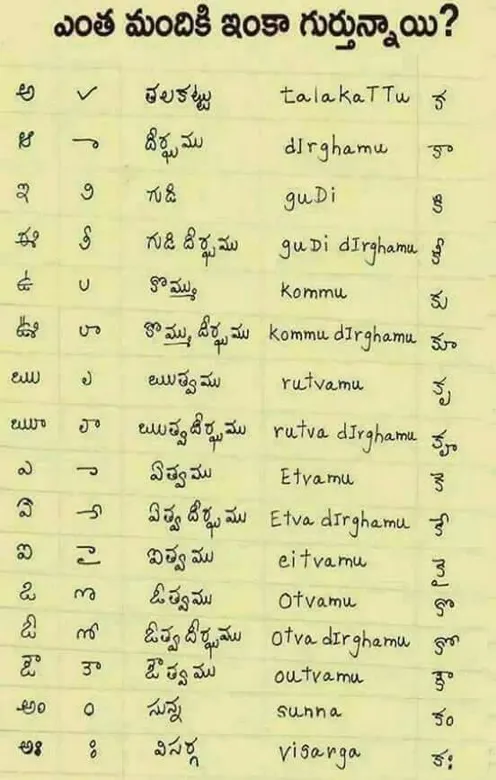 ఎంత మందికి ఇంకా గుర్తున్నాయి?
అ ✓ తలకట్టు talakaTTu క
ఆ ా దీర్ఘము dIrghamu కా
ఇ ి గుడి guDi కి
ఈ ీ గుడి దీర్ఘము guDi dIrghamu కీ
ఉ ు కొమ్ము kommu కు
ఊ ూ కొమ్ము దీర్ఘము kommu dIrghamu కూ
ఋ ృ ఋత్వము rutvamu కృ
ౠ ౄ ఋత్వదీర్ఘము rutva dIrghamu కౄ
ఎ ె ఏత్వము Etvamu కె
ఏ ే ఏత్వ దీర్ఘము Etva dIrghamu కే
ఐ ై ఐత్వము eitvamu కై
ఒ ొ ఓత్వము Otvamu కొ
ఓ ో ఓత్వ దీర్ఘము Otva dIrghamu కో
ఔ ౌ ఔత్వము outvamu కౌ
అం ం సున్న sunna కం
అః ః విసర్గ visarga కః